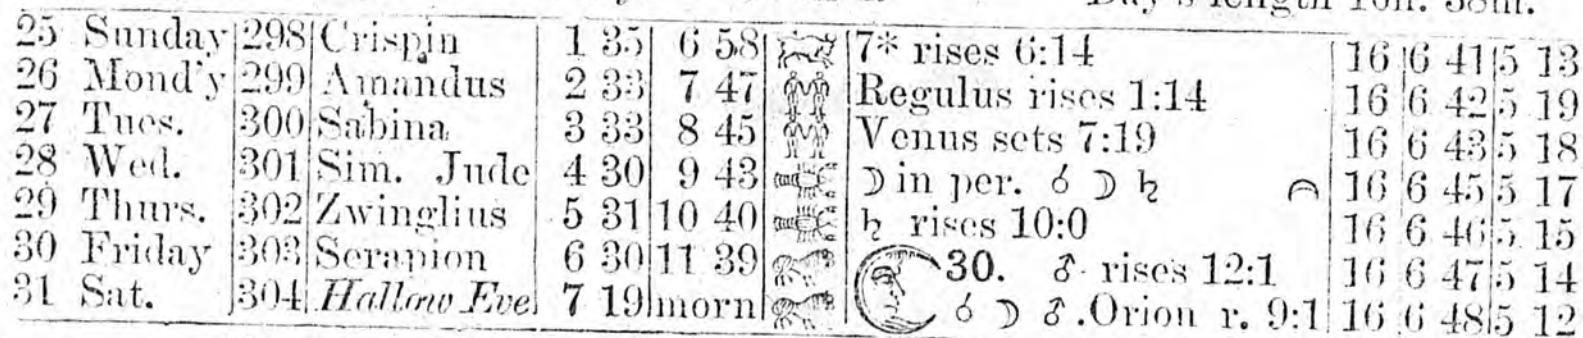 Day's length 10h. 38m.
25 Sunday 298 Crispin 1 35 6 58 7* rises 6:14 16 6 41 5 13
26 Mond'y 299 Amandus 2 33 7 47 Regulus rises 1:14 16 6 42 5 19
27 Tues. 300 Sabina 3 33 8 45 Venus sets 7:19 16 6 43 5 18
28 Wed. 301 Sim. Jude 4 30 9 43 ☽ in per. ☌ ☽ ♄ 16 6 45 5 17
29 Thurs. 302 Zwinglius 5 31 10 40 ♄ rises 10:0 16 6 46 5 15
30 Friday 303 Serapion 6 30 11 39 30. ♂ rises 12:1 16 6 47 5 14
31 Sat. 304 Hallow Eve 7 19 morn ☌ ☽ ♂. Orion r. 9:1 16 6 48 5 12